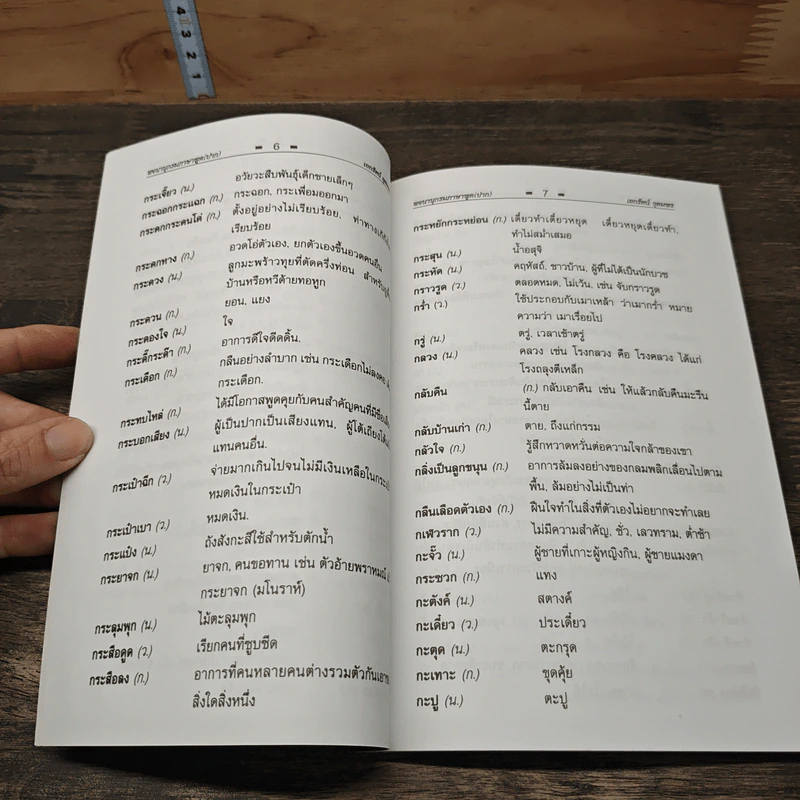 4 3 2 1
พจนานุกรมภาษาพูด(ปาก) - 6 - เอกรัตน์
กระเจี๊ยว (น.) อวัยวะสืบพันธุ์เด็กชายเล็กๆ
กระฉอกกระแฉก (ก.) กระฉอก, กระเพื่อมออกมา
กระดกกระดนโด่ (ก.) ตั้งอยู่อย่างไม่เรียบร้อย, ท่าทาง
เรียบร้อย
กระดกหาง (ก.) อวดโอ่ตัวเอง, ยกตัวเองขึ้นอวดคนอื่น
กระดวง (น.) ลูกมะพร้าวทุยที่ตัดครึ่งท่อน สำหรับ
บ้านหรือหวีด้ายทอหูก
กระดวน (ก.) ยอน, แยง
กระดองใจ (น.) ใจ
กระดี๊กระด๊า (ก.) อาการดีใจดีดดิ้น.
กระเดือก (ก.) กลืนอย่างลำบาก เช่น กระเดือกไม่ลงคอ
กระเดือก.
กระทบไหล่ (ก.) ได้มีโอกาสพูดคุยกับคนสำคัญคนที่มีชื่อ
กระบอกเสียง (น.) ผู้เป็นปากเป็นเสียงแทน, ผู้โต้เถียง
แทนคนอื่น.
กระเป๋าฉีก (ว.) จ่ายมากเกินไปจนไม่มีเงินเหลือใน
หมดเงินในกระเป๋า
กระเป๋าเบา (ว.) หมดเงิน.
กระแป๋ง (น.) ถังสังกะสีใช้สำหรับตักน้ำ
กระยาจก (น.) ยาจก, คนขอทาน เช่น ตัวอ้ายพราหมณ์
กระยาจก (มโนราห์)
กระลุมพุก (น.) ไม้ตะลุมพุก
กระสือดูด (ว.) เรียกคนที่ซูบซีด
กระสือลง (ก.) อาการที่คนหลายคนต่างรวมตัวกัน
สิ่งใดสิ่งหนึ่ง
พจนานุกรมภาษาพูด(ปาก) - 7 - เอกรัตน์ อุดมพร
กระหยักกระหย่อน (ก.) เดี๋ยวทำเดี๋ยวหยุด เดี๋ยวหยุดเดี๋ยวทำ,
ทำไม่สม่ำเสมอ
กระสุน (น.) น้ำอสุจิ
กระหัด (น.) คฤหัสถ์, ชาวบ้าน, ผู้ที่ไม่ได้เป็นนักบวช
กราวรูด (ว.) ตลอดหมด, ไม่เว้น, เช่น จับกราวรูด
กร่ำ (ว.) ใช้ประกอบกับเมาเหล้า ว่าเมากร่ำ หมาย
ความว่า เมาเรื่อยไป
กรู่ (น.) ตรู่, เวลาเช้าตรู่
กลวง (น.) คลวง เช่น โรงกลวง คือ โรงคลวง ได้แก่
โรงถลุงตีเหล็ก
กลับคืน (ก.) กลับเอาคืน เช่น ให้แล้วกลับคืนมะรืน
นี้ตาย
กลับบ้านเก่า (ก.) ตาย, ถึงแก่กรรม
กลัวใจ (ก.) รู้สึกหวาดหวั่นต่อความใจกล้าของเขา
กลิ้งเป็นลูกขนุน (ก.) อาการล้มลงอย่างของกลมพลิกเลื่อนไปตาม
พื้น, ล้มอย่างไม่เป็นท่า
กลืนเลือดตัวเอง (ก.) ฝืนใจทำในสิ่งที่ตัวเองไม่อยากจะทำเลย
กเฬวราก (ว.) ไม่มีความสำคัญ, ชั่ว, เลวทราม, ต่ำช้า
กะจั๊ว (น.) ผู้ชายที่เกาะผู้หญิงกิน, ผู้ชายแมงดา
กระซวก (ก.) แทง
กะตังค์ (น.) สตางค์
กะเดี๋ยว (ว.) ประเดี๋ยว
กะตุด (น.) ตะกรุด
กะเทาะ (ก.) ขุดคุ้ย
กะปู (น.) ตะปู